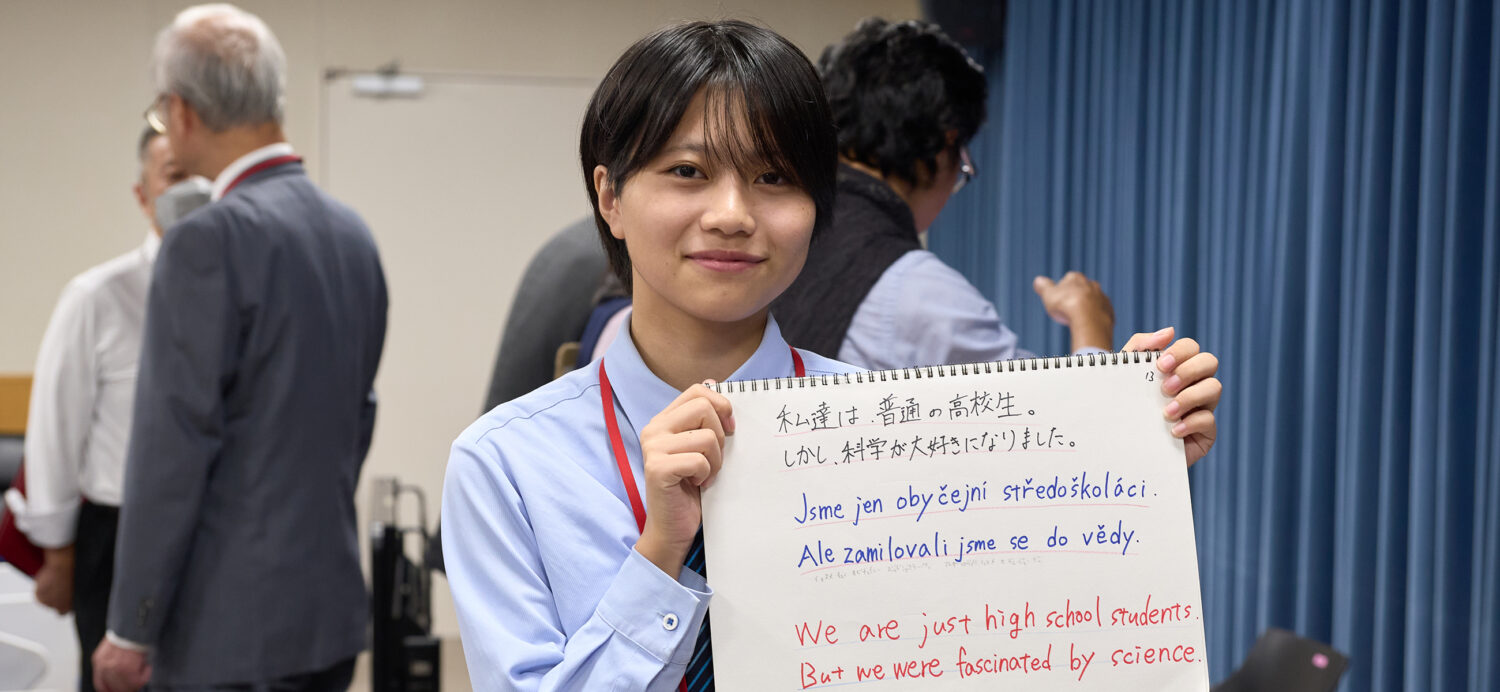 13
私達は、普通の高校生。
しかし、科学が大好きになりました。
Jsme jen obyčejní středoškoláci.
Ale zamilovali jsme se do vědy.
We are just high school students.
But we were fascinated by science.